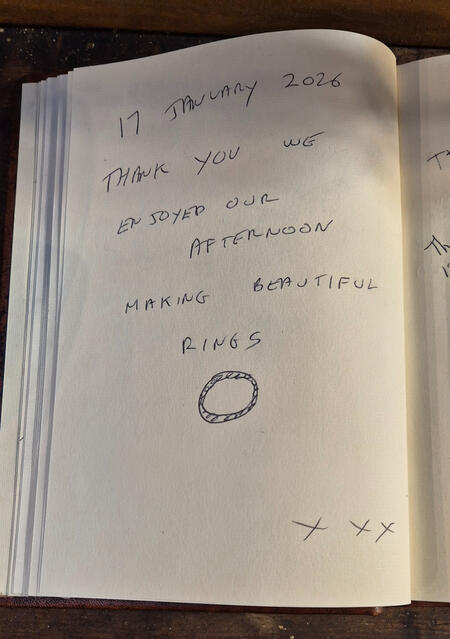 17 JANUARY 2026
THANK YOU WE
ENJOYED OUR
AFTERNOON
MAKING BEAUTIFUL
RINGS
X XX